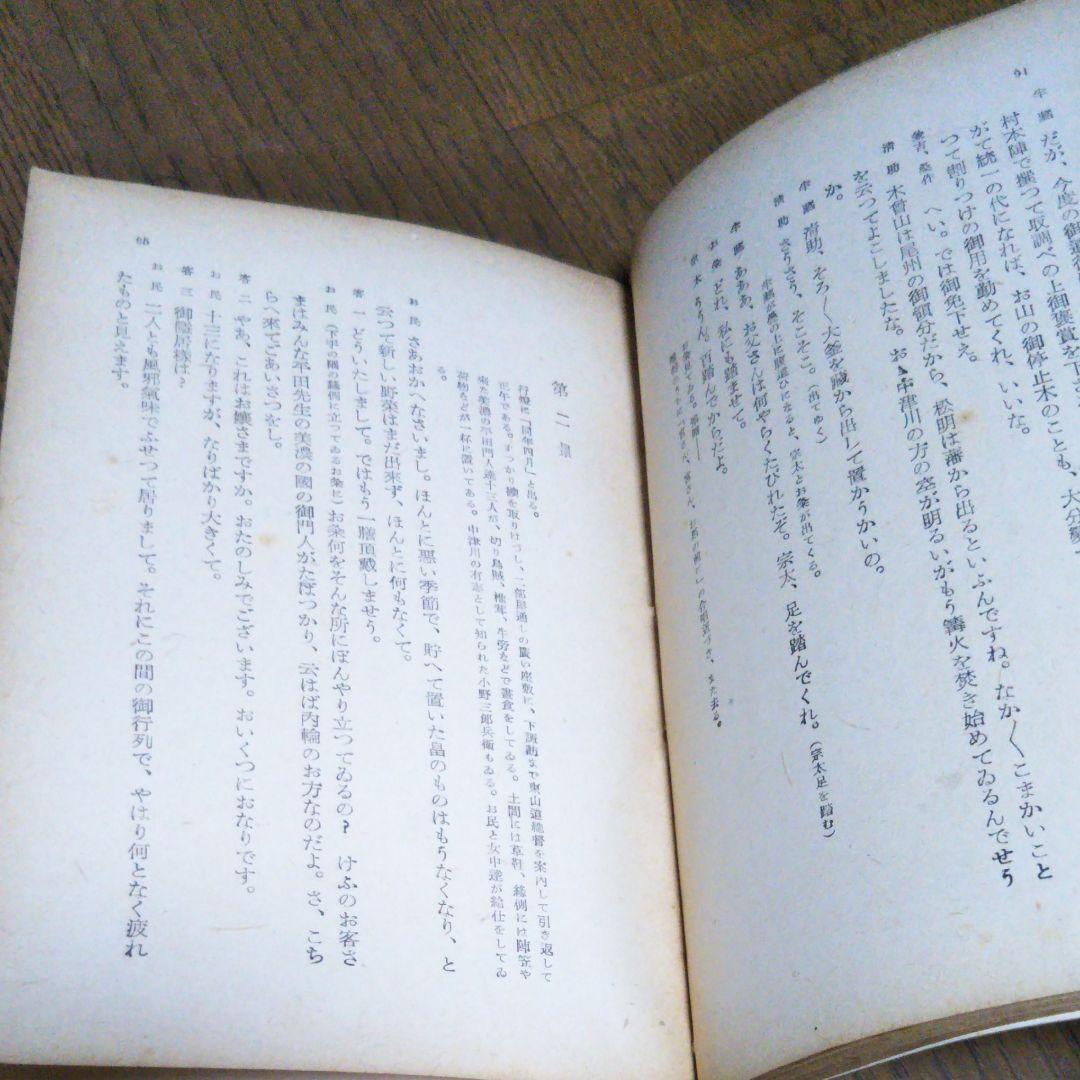 半藏 だが、今度の御通行
村本陣で揃つて取調べの上御褒賞を下
がて統一の代になれば、お山の御停止木のことも、大分變
つて割りつけの御用を勤めてくれ、いいな。
兼吉、桑作 へい。では御免下せえ。
清助 木曾山は尾州の御領分だから、松明は藩から出るといふんですね。なか〱こまかいこと
を云つてよこしましたな。お、中津川の方の空が明るいがもう篝火を焚き始めてゐるんでせう
か。
半藏 清助、そろ〱大釜を藏から出して置かうかいの。
清助 さうさう、そこそこ。(出てゆく)
半藏が疊の上に腹這ひになると、宗太とお粂が出てくる。
半藏 ああ、お父さんは何やらくたびれたぞ。宗太、足を踏んでくれ。(宗太足を踏む)
お粂 どれ、私にも踏ませて。
宗太 ううん。百踏んでからだよ。
第二景
行燈に「同年四月」と出る。
正午である。すつかり襖を取りはづし、二部屋通しの廣い座敷に、下諏訪まで東山道總督を案内して引き返して
來た美濃の平田門人達十三人が、切り烏賊、椎茸、牛蒡などで晝食をしてゐる。土間には草鞋、緣側には陣笠や
荷物などが一杯に置いてある。中津川の有志として知られた小野三郎兵衞もゐる。お民と女中達が給仕をしてゐ
る。
お民 さあおかへなさいまし。ほんとに悪い季節で、貯へて置いた畠のものはもうなくなり、と
云つて新しい野菜はまだ出來ず、ほんとに何もなくて。
客一 どういたしまして。ではもう一膳頂戴しませう。
お民 (下手の隅の緣側に立つてゐるお粂に)お粂何をそんな所にぼんやり立つてゐるの? けふのお客さ
まはみんな平田先生の美濃の國の御門人がたばつかり、云はば内輪のお方なのだよ。さ、こち
らへ來てごあいさつをし。
客二 やあ、これはお孃さまですか。おたのしみでございます。おいくつにおなりです。
お民 十三になりますが、なりばかり大きくて。
客三 御隱居樣は?
お民 二人とも風邪氣味でふせつて居りまして。それにこの間の御行列で、やはり何となく疲れ
たものと見えます。